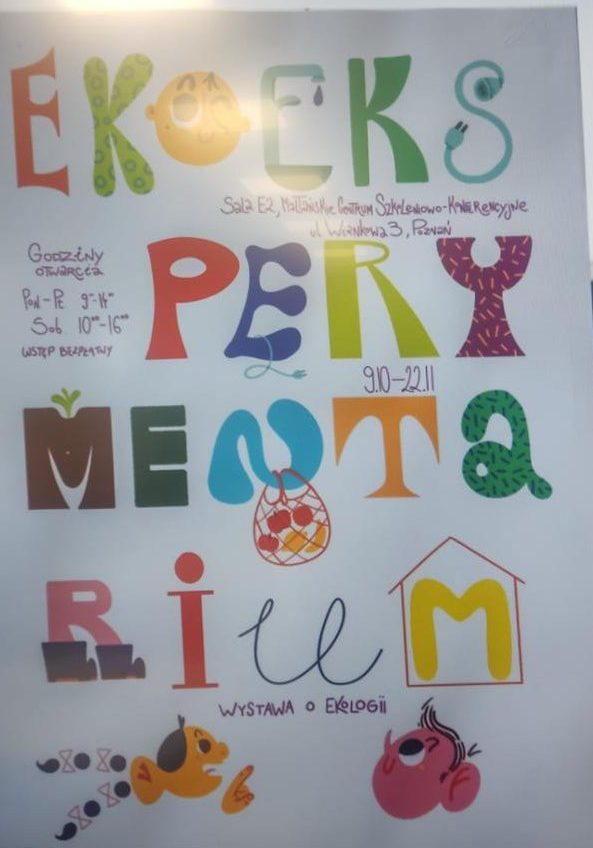 EKOEKS
Sala E2, Maltańskie Centrum Szkoleniowo-Konferencyjne
ul. Wiankowa 3, Poznań
Godziny
otwarcia
Pon-Pt
Sob. 10⁰⁰-16⁰⁰
WSTĘP BEZPŁATNY
PERY
9.10-22.11
MENTa
RiuM
WYSTAWA O EKOLOGII